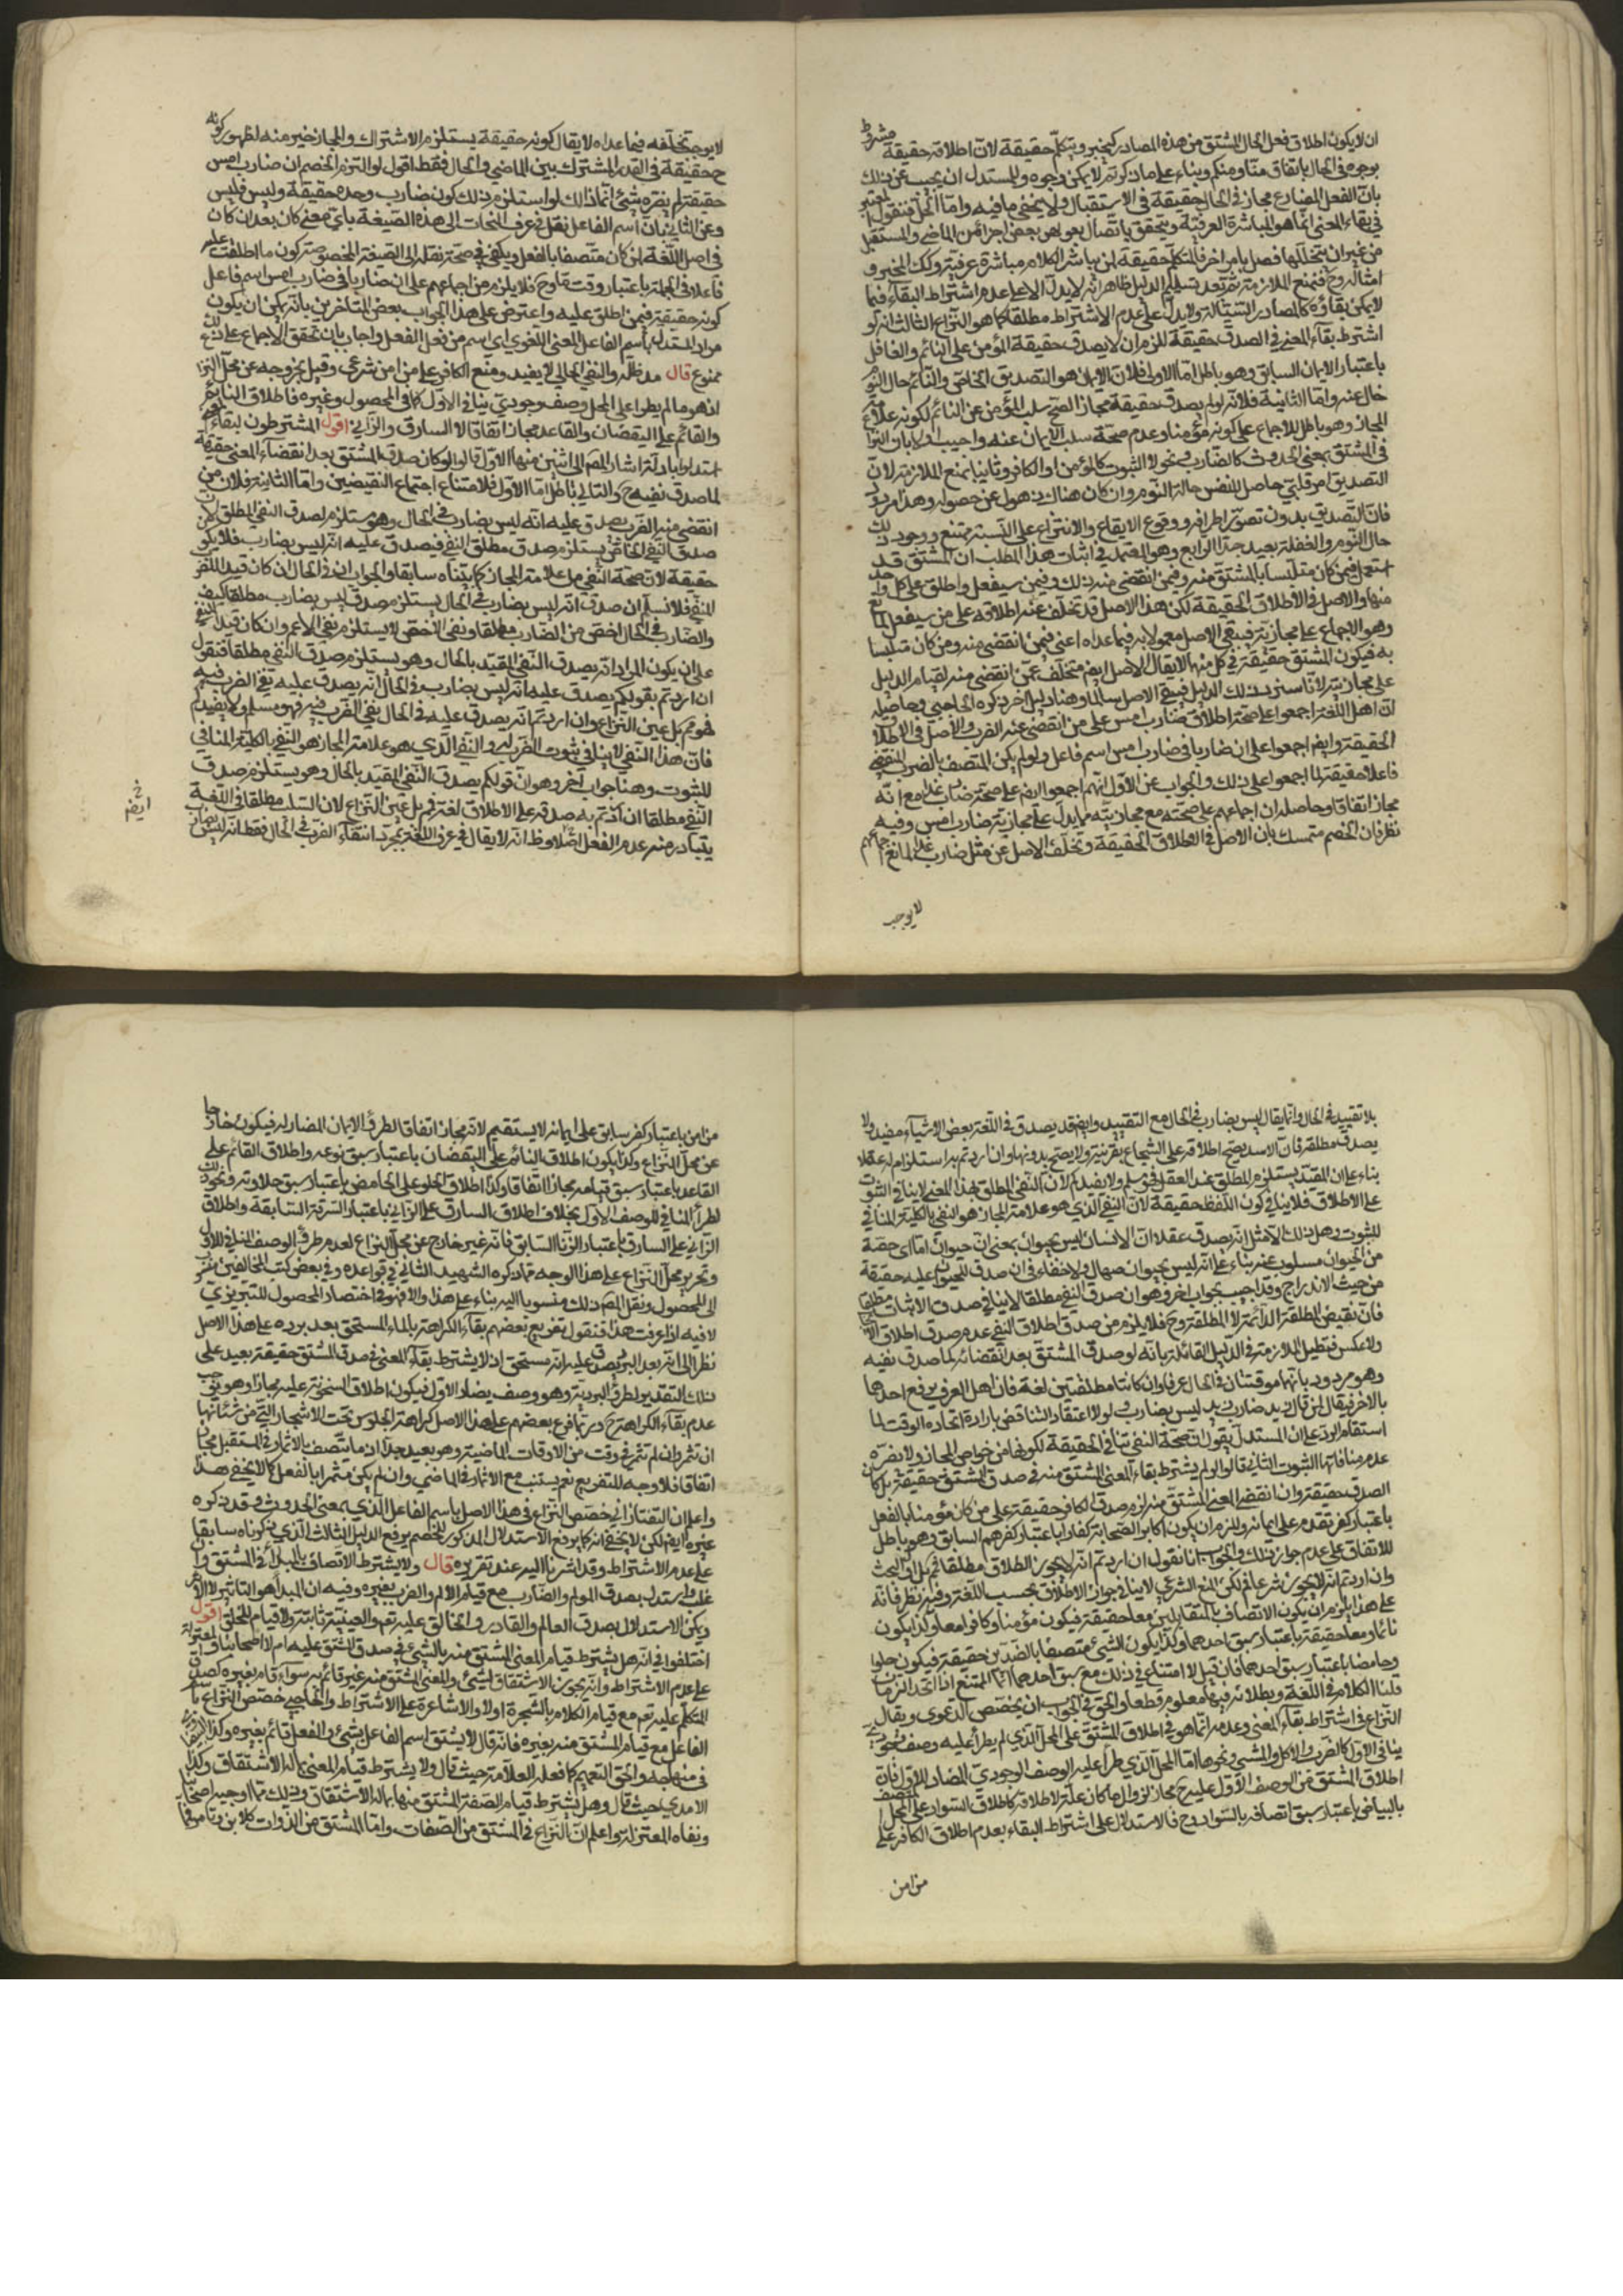 ان لا يكون اطلاق فعل الحال المشتق من هذه المصادر كيخبر ويتكلم حقيقة لان اطلاقه حقيقة مشروط
بوجوده في الحال باتفاق منا ومنكم وبناء على ما ذكرتم لا يمكن وجوده وللمستدل ان يجيب عن ذلك
بان الفعل المضارع مجاز في الحال حقيقة في الاستقبال ولا يخفى ما فيه واما الحل فنقول المعتبر
في بقاء المعنى انما هو المباشرة العرفية ويتحقق باتصال بعض اجزائه من الماضي والمستقبل
من غير ان يتخللها فصل بامر اخر فالمتكلم حقيقة لمن يباشر الكلام مباشرة عرفية وكذلك المخبر و
امثاله وح فنمنع الملازمة ثم بعد تسليم الدليل ظاهر انه لا يدل الا على عدم اشتراط البقاء فيما
لا يمكن بقاؤه كالمصادر السيالة ولا يدل على عدم الاشتراط مطلقا كما هو النزاع الثالث انه لو
اشترط بقاء المعنى في الصدق حقيقة لزم ان لا يصدق حقيقة المؤمن على النائم والغافل
باعتبار الايمان السابق وهو باطل اما الاولى فلان الايمان هو التصديق الخاص والنائم حال النوم
خال عنه واما الثانية فلانه لو لم يصدق حقيقة مجازا لصح سلب المؤمن عن النائم لكونه علامة
المجاز وهو باطل للاجماع على كونه مؤمنا وعدم صحة سلب الايمان عنه واجيب اولا بان النزاع
في المشتق بمعنى الحدوث كالضارب ونحوه لا الثبوت كالمؤمن او الكافر وثانيا بمنع الملازمة لان
التصديق امر قلبي حاصل للنفس حالة النوم وان كان هناك ذهول عن حصوله وهذا مردود
فان التصديق بدون تصور اطرافه ووقوع الايقاع والانتزاع على النسبة ممتنع ووجود ذلك
حال النوم والغفلة بعيد جدا الرابع وهو المعتمد في اثبات هذا المطلب ان المشتق قد
استعمل فيمن كان متلبسا بالمشتق منه وفيمن انقضى منه ذلك وفيمن سيفعل واطلق على كل واحد
منها والاصل في الاطلاق الحقيقة لكن هذا الاصل قد تخلف عنه اطلاقه على من سيفعل لمانع
وهو الاجماع على مجازيته فبقي الاصل معمولا به فيما عداه اعني فيمن انقضى منه ومن كان متلبسا
به فيكون المشتق حقيقة في كل منهما لا يقال الاصل ايضا متخلف عمن انقضى منه لقيام الدليل
على مجازيته لانا سنرد ذلك الدليل فيبقى الاصل سالما وهنا دليل اخر ذكره الحاجبي وحاصله
ان اهل اللغة اجمعوا على صحة اطلاق ضارب امس على من انقضى عنه الضرب والاصل في الاطلاق
الحقيقة وايضا اجمعوا على ان ضاربا في ضارب امس اسم فاعل ولو لم يكن المتصف بالضرب المنقضي
فاعلا حقيقة لما اجمعوا على ذلك والجواب عن الاول انهم اجمعوا ايضا على صحة ضارب غدا مع انه
مجاز اتفاقا وحاصله ان اجماعهم على صحته مع مجازيته مما يدل على مجازية ضارب امس وفيه
نظر فان الخصم متمسك بان الاصل في الاطلاق الحقيقة وتخلف الاصل عن مثل ضارب غدا لمانع
لا يوجب
لا يوجب تخلفه فيما عداه لا يقال كونه حقيقة يستلزم الاشتراك والمجاز خير منه لظهور كونه
ح حقيقة في القدر المشترك بين الماضي والحال فقط اقول لو التزم الخصم ان ضارب امس
حقيقة لم يضره شئ انما ذلك لو استلزم ذلك كون ضارب وحده حقيقة وليس فليس
وعن الثاني بان اسم الفاعل نقل في عرف النحات الى هذه الصيغة باي معنى كان بعد ان كان
في اصل اللغة لمن كان متصفا بالفعل ويكفي في صحة نقله الى الصيغة المخصوصة كون ما اطلقت عليه
فاعلا في الجملة باعتبار وقت ما وح فلا يلزم من اجماعهم على ان ضاربا في ضارب امس اسم فاعل
كونه حقيقة فيمن اطلق عليه واعترض على هذا الجواب بعض المتاخرين بانه يمكن ان يكون
مراد المستدل باسم الفاعل المعنى اللغوي اي اسم من فعل الفعل واجاب بان تحقق الاجماع على ذلك
ممنوع قال مد ظله والنفي الحالي لا يفيد ومنع الكافر على من امن شرعي وقيل بخروجه عن محل النزاع
اذ هو ما لم يطرا على المحل وصف وجودي ينافي الاول كما في المحصول وغيره فاطلاق النائم
والقائم على اليقضان والقاعد مجاز اتفاقا لا السارق والزاني اقول المشترطون لبقاء
استدلوا بادلة اشار المصـ الى اثنين منها الاول قالوا لو كان صدق المشتق بعد انقضاء المعنى حقيقة
لما صدق نفيه ح والتالي باطل اما الاول فلامتناع اجتماع النقيضين واما الثانية فلان من
انقضى منه الضرب يصدق عليه انه ليس بضارب في الحال وهو مستلزم لصدق النفي المطلق لان
صدق النفي الخاص يستلزم صدق مطلق النفي فيصدق عليه انه ليس بضارب فلا يكون
حقيقة لان صحة النفي من علامة المجاز كما بيناه سابقا والجواب ان في الحال ان كان قيدا للنفي
المنفي فلا نسلم ان صدق انه ليس بضارب في الحال يستلزم صدق ليس بضارب مطلقا كيف
والضارب في الحال اخص من الضارب مطلقا ونفي الاخص لا يستلزم نفي الاعم وان كان قيدا للنفي
على ان يكون المراد انه يصدق النفي المقيد بالحال وهو يستلزم صدق النفي مطلقا فنقول
ان اردتم بقولكم يصدق عليه انه ليس بضارب في الحال انه يصدق عليه نفي الضرب فيه
فهو مم بل عين النزاع وان اردتم انه يصدق عليه في الحال نفي الضرب فيه فهو مسلم ولا يفيدكم
فان هذا النفي لا ينافي ثبوت الضرب له والنفي الذي هو علامة المجاز هو النفي بالكلية المنافي
للثبوت وهنا جواب اخر وهو ان قولكم يصدق النفي المقيد بالحال وهو يستلزم صدق
النفي مطلقا ان اردتم به صدقه على الاطلاق لغة فمم بل عين النزاع لان السلب مطلقا في اللغة
يتبادر منه عدم الفعل اصلا وظ انه لا يقال في عرف اللغة بمجرد انتفاء الضرب في الحال فقط انه ليس بضارب
ايضا
بلا تقييد في الحال وانما يقال ليس بضارب في الحال مع التقييد وايضا قد يصدق في اللغة بعض الاشياء مقيدا ولا
يصدق مطلقه فان الاسد يصح اطلاقه على الشجاع بقرينة ولا يصح بدونها وان اردتم به استلزامه له عقلا
بناء على ان المقيد يستلزم المطلق عند العقل فمسلم ولا يفيدكم لان النفي المطلق بهذا المعنى لا ينافي الثبوت
على الاطلاق فلا ينافي كون اللفظ حقيقة لان النفي الذي هو علامة المجاز هو النفي بالكلية المنافي
للثبوت وهل ذلك الا مثل انه يصدق عقلا ان الانسان ليس بحيوان بمعنى ان حيوانا ما اي حصة
من الحيوان مسلوب عنه بناء على انه ليس بحيوان صهال ولا خفاء في ان صدق الحيوان عليه حقيقة
من حيث الاندراج وقد اجيب بجواب اخر وهو ان صدق النفي مطلقا لا ينافي صدق الاثبات مطلقا
فان نقيض المطلقة الدائمة لا المطلقة وح فلا يلزم من صدق اطلاق النفي عدم صدق اطلاق الاثبات
ولا عكس فتبطل الملازمة في الدليل القائلة بانه لو صدق المشتق بعد انقضائه لما صدق نفيه
وهو مردود بانهما موقتتان في الحال عرفا وان كانتا مطلقتين لغة فان اهل العرف يرفع احدهما
بالاخر فيقال لمن قال زيد ضارب زيد ليس بضارب ولولا اعتقاد التناقض بارادة اتحاد الوقت لما
استقام الرد على ان المستدل يقول ان صحة النفي تنافي الحقيقة لكونها من خواص المجاز ولا يضره
عدم منافاتها الثبوت الثاني قالوا لو لم يشترط بقاء المعنى المشتق منه في صدق المشتق حقيقة بل كان
الصدق حقيقة وان انقضى المعنى المشتق منه لزم صدق الكافر حقيقة على من كان مؤمنا بالفعل
باعتبار كفر تقدم على ايمانه ولزم ان يكون اكابر الصحابة كفارا باعتبار كفرهم السابق وهو باطل
للاتفاق على عدم جواز ذلك والجواب انا نقول ان اردتم انه لا يجوز الاطلاق مطلقا فمم بل اول البحث
وان اردتم انه لا يجوز شرعا فمسلم لكن المنع الشرعي لا ينافي جواز الاطلاق بحسب اللغة وفيه نظر فانه
على هذا يلزم ان يكون الاتصاف بالمتقابلين معا حقيقة فيكون مؤمنا وكافرا معا وكذا يكون
نائما ومعا حقيقة باعتبار سبق احدهما وكذا يكون الشئ متصفا بالضدين حقيقة فيكون حلوا
وحامضا باعتبار سبق احدهما فان قيل لا امتناع في ذلك مع سبق احدهما انما الممتنع اذا اتحد الزمان
قلنا الكلام في اللغة وبطلانه فيها معلوم قطعا والحق في الجواب ان يخصص الدعوى ويقال
النزاع في اشتراط بقاء المعنى وعدمه انما هو في اطلاق المشتق على المحل الذي لم يطرأ عليه وصف وجودي
ينافي الاول كالضرب والاكل والمشي ونحوها اما المحل الذي طرأ عليه الوصف الوجودي المضاد للاول فان
اطلاق المشتق من الوصف الاول عليه ح مجاز لزوال ما كان علة لاطلاقه كاطلاق السواد على المحل المتصف
بالبياض باعتبار سبق اتصافه بالسواد وح فالاستدلال على اشتراط البقاء بعدم اطلاق الكافر على
من امن
من امن باعتبار كفر سابق على ايمانه لا يستقيم لانه مجاز اتفاقا لطرو الايمان المضاد له فيكون خارجا
عن محل النزاع وكذا يكون اطلاق النائم على اليقضان باعتبار سبق نومه واطلاق القائم على
القاعد باعتبار سبق قيامه مجازا اتفاقا وكذا اطلاق الحلو على الحامض باعتبار سبق حلاوته ونحو ذلك
لطرء المنافي للوصف الاول بخلاف اطلاق السارق على الزاني باعتبار السرقة السابقة واطلاق
الزاني على السارق باعتبار الزنا السابق فانه غير خارج عن محل النزاع لعدم طرو الوصف المنافي للاول
وتحرير محل النزاع على هذا الوجه مما ذكره الشهيد الثاني في قواعده وفي بعض كتب المخالفين نسبه
الى المحصول ونقل المصـ ذلك منسوبا اليه بناء على هذا والا فهو في اختصار المحصول للتبريزي
لا فيه اذا عرفت هذا فنقول تفريع بعضهم بقاء الكراهة بالماء المستحق بعد برده على هذا الاصل
نظرا الى انه بعد البرد يصدق عليه انه مستحق ان لا يشترط بقاء المعنى في صدق المشتق حقيقة بعيد على
ذلك التقدير لطرو البرودة وهو وصف يضاد الاول فيكون اطلاق السخونة عليه مجازا وهو يوجب
عدم بقاء الكراهة ح وربما فرع بعضهم على هذا الاصل كراهة الجلوس تحت الاشجار التي من شئانها
ان تثمر وان لم تثمر في وقت من الاوقات الماضية وهو بعيد جدا ان ما يتصف بالاثمار في المستقبل مجاز
اتفاقا فلا وجه للتفريع نعم يستتب مع الاثمار في الماضي وان لم يكن مثمرا بالفعل كما لا يخفى هذا
واعلم ان التفتازاني خصص النزاع في هذا الاصل باسم الفاعل الذي بمعنى الحدوث وقد ذكره
غيره ايضا لكن لا يخفى انه كما يدفع الاستدلال المذكور للخصم يرفع الدليل الثالث الذي ذكرناه سابقا
على عدم الاشتراط وقد اشرنا اليه عند تقريره قال ولا يشترط الاتصاف بالمبدأ في المشتق وان
غلب واستدل بصدق المولم والضارب مع قيام الالم والضرب بغيره وفيه ان المبدأ هو التاثير لا الاثر
ويمكن الاستدلال بصدق العالم والقادر والخالق عليه تعم والعينية ثابتة ولا قيام للخلق اقول
اختلفوا في انه هل يشترط قيام المعنى المشتق منه بالشئ في صدق المشتق عليه ام لا اصحابنا والمعتزلة
على عدم الاشتراط وانه يجوز الاشتقاق لشئ والمعنى المشتق منه غير قائم به سواء قام بغيره كصدق
المتكلم عليه تعم مع قيام الكلام بالشجرة اولا والاشاعرة على الاشتراط والحاجبي خصص النزاع باسم
الفاعل مع قيام المشتق منه بغيره فانه قال لا يشتق اسم الفاعل لشئ والفعل قائم بغيره وكذا البيضاوي
في منهاجه والحق التعميم كما فعله العلامة حيث قال ولا يشترط قيام المعنى بماله الاشتقاق وكذا
الامدي حيث قال وهل يشترط قيام الصفة المشتق منها بماله الاشتقاق وذلك مما اوجبه اصحابنا
ونفاه المعتزلة واعلم ان النزاع في المشتق من الصفات واما المشتق من الذوات كلابن وتامر